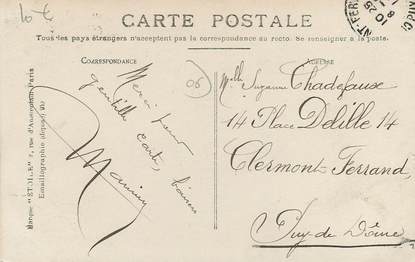 10 €
CARTE POSTALE
Tous les pays étrangers n'acceptent pas la correspondance au recto. Se renseigner à la poste.
CORRESPONDANCE
ADRESSE
06
Merci pour
gentille carte, bisous
Melle Suzanne Chadefaux
14 Place Delille 14
Clermont Ferrand
Puy-de-Dôme
Marque "ETOILE"
Emaillographie déposé